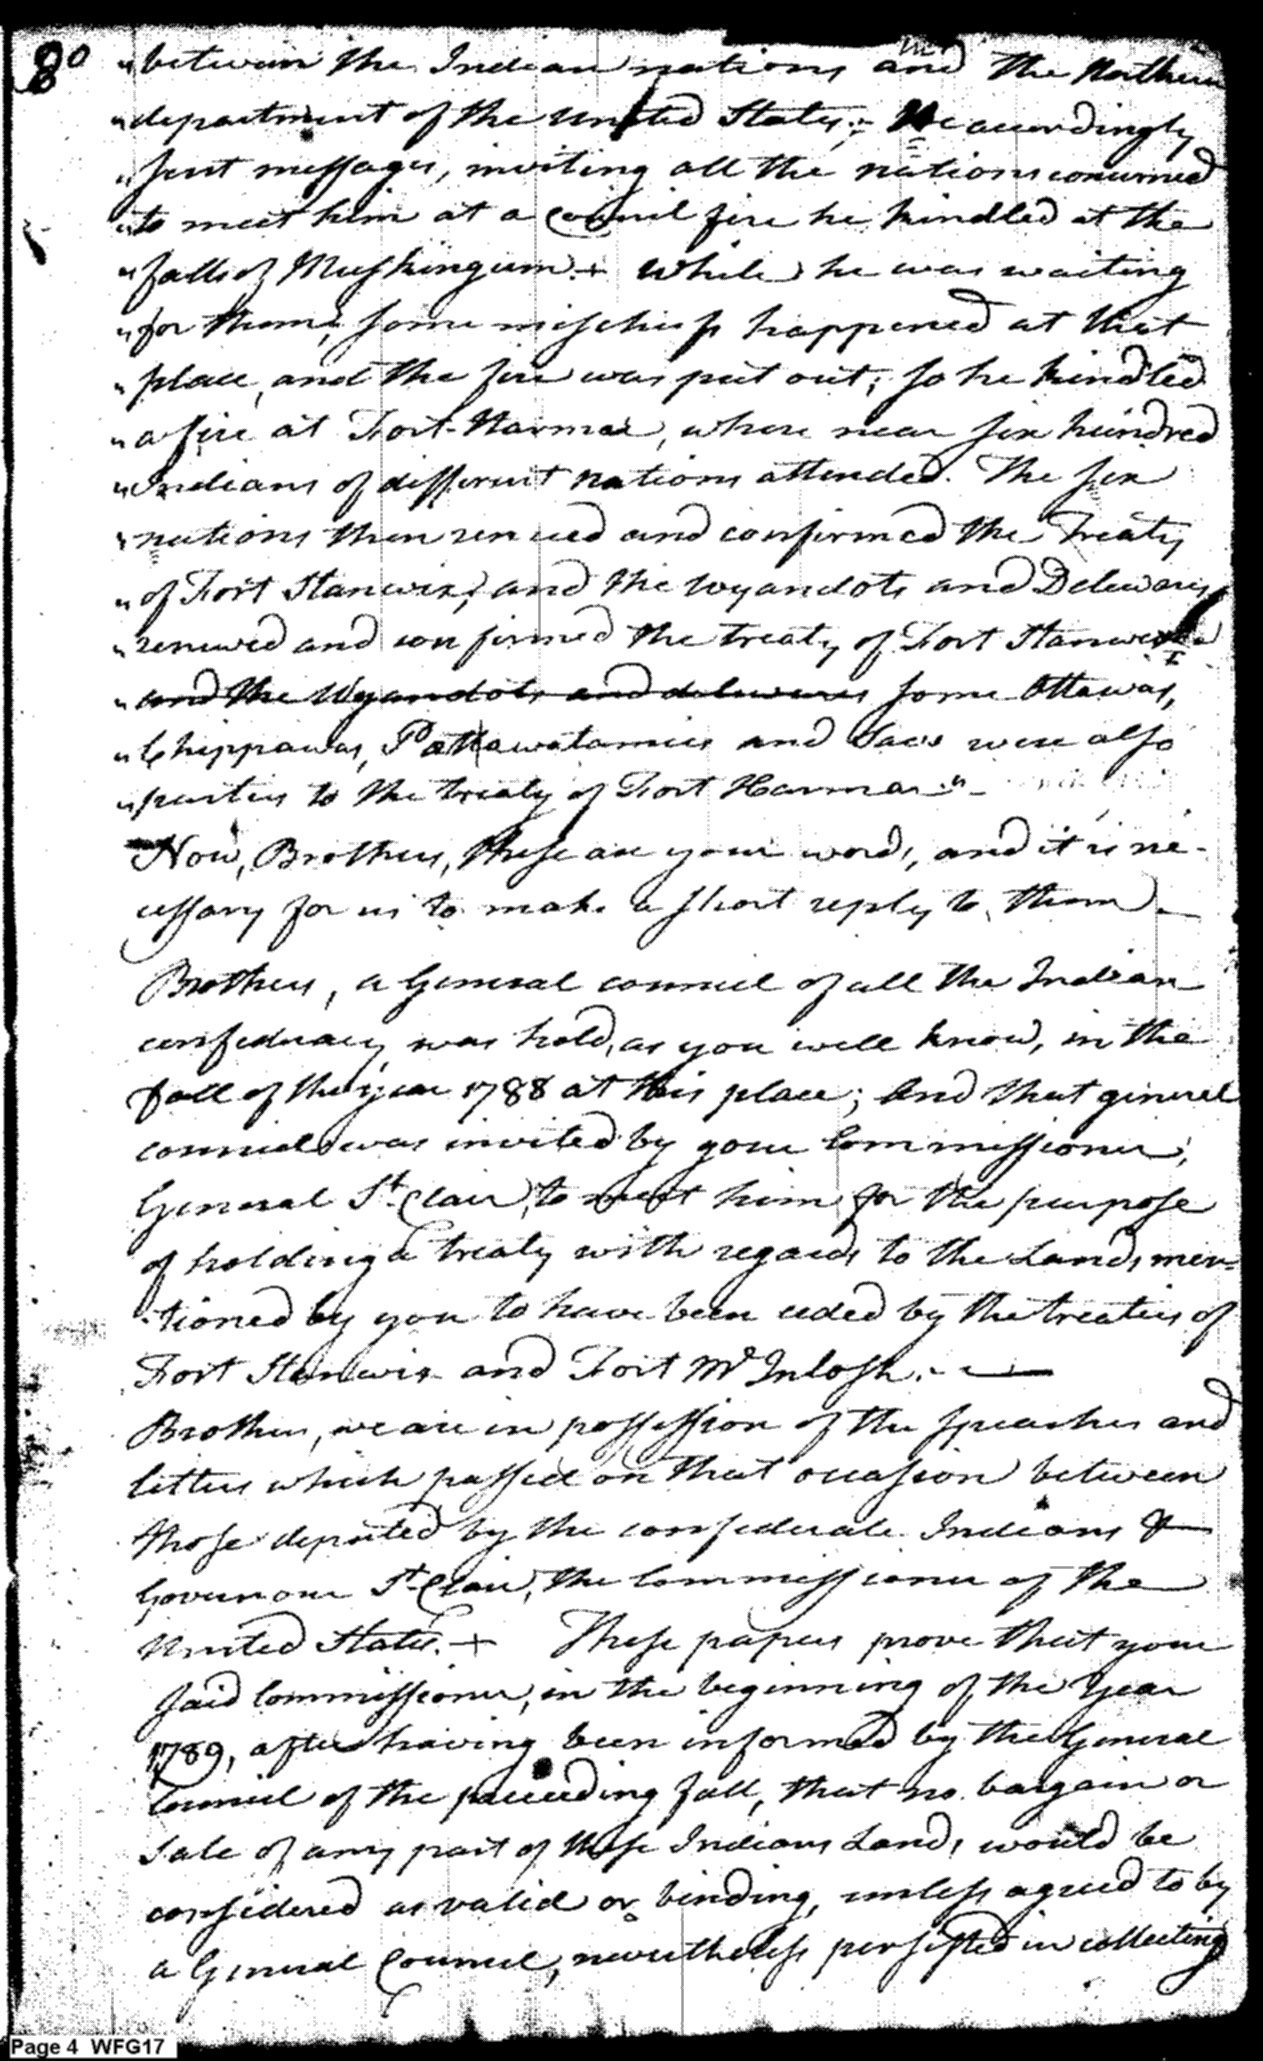 80
"between the Indian nations in and the Northern
"department of the United States: – He accordingly
"sent messages, inviting all the nations concerned
"to meet him at a council fire he kindled at the
"falls of Muskingum. + While he was waiting
"for them, some mischief happened at that
"place, and the fire was put out; so he kindled
"a fire at Fort-Harmar, where near six hundred
"Indians of different nations attended. The six
"nations then renued and confirmed the Treaty
"of Fort Stanwix; and the Wyandots and Delawares
"renewed and confirmed the treaty of Fort
"and the Wyandots and delawares some Ottawas,
"Chippawas, Pattawatamies and Sacs were also
"parties to the treaty of Fort Harmar." –
Now, Brothers, these are your words, and it is ne-
cessary for us to make a short reply to them. –
Brothers, a General council of all the Indian
confederacy was held, as you well know, in the
fall of the year 1788 at this place; And that general
council was invited by your Commissioner,
General St. Clair, to meet him for the purpose
of holding a treaty with regard to the Lands men=
-tioned by you to have been ceded by the treaties of
Fort Stanwix and Fort McIntosh. – —
Brothers, we are in possession of the speaches and
letters which passed on that occasion between
those deputed by the confederate Indians &
Governour St. Clair, the Commissioner of the
United States. + These papers prove that your
said Commissioner, in the beginning of the Year
1789, after having been informed by the General
Council of the preceeding fall, that no bargain or
sale of any part of these Indians Lands would be
considered as valid or binding, unless agreed to by
a General Council, nevertheless persisted in collecting
Page 4 WFG17